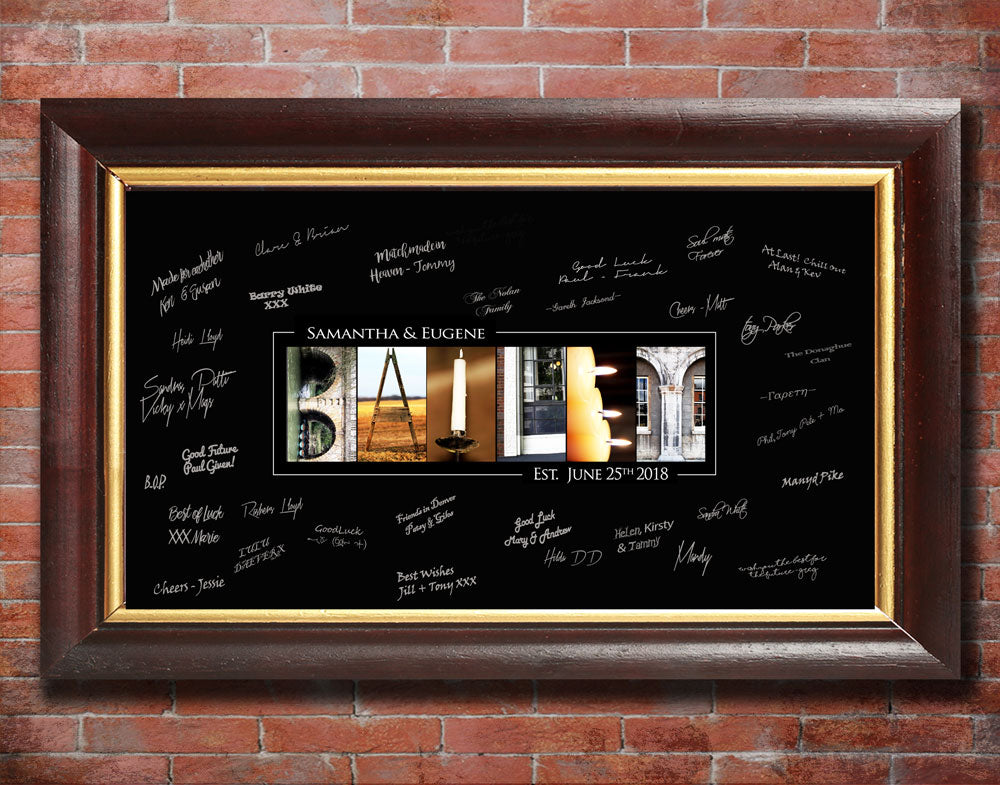 Clare & Brian
Matchmade in
Heaven - Tommy
wish you the best for
the future - greg
Soul mate
Forever
Made for eachother
Ken & Susan
Good Luck
Paul - Frank
At Last! Chill out
Alan & Kev
Barry White
XXX
The Nolan
Family
~Gareth Jacksond~
Cheers - Matt
Tony Parker
Heidi Lloyd
SAMANTHA & EUGENE
BAILEY
EST. JUNE 25TH 2018
The Donaghue
Clan
Sandra, Patti
Vicky x Mags
~Γαρετη~
Phil, Tony Pete + Mo
Good Future
Paul Given!
B.O.P.
Manyd Pike
Best of Luck
XXX Marie
Robern Lloyd
GoodLuck
Friends in Denver
Patsy & Giles
Good Luck
Mary & Andrew
Helen, Kirsty
& Tammy
Sandra White
LULU
DAEFERX
Hilds DD
Mandy
wish you the best for
the future - greg
Cheers - Jessie
Best Wishes
Jill + Tony XXX